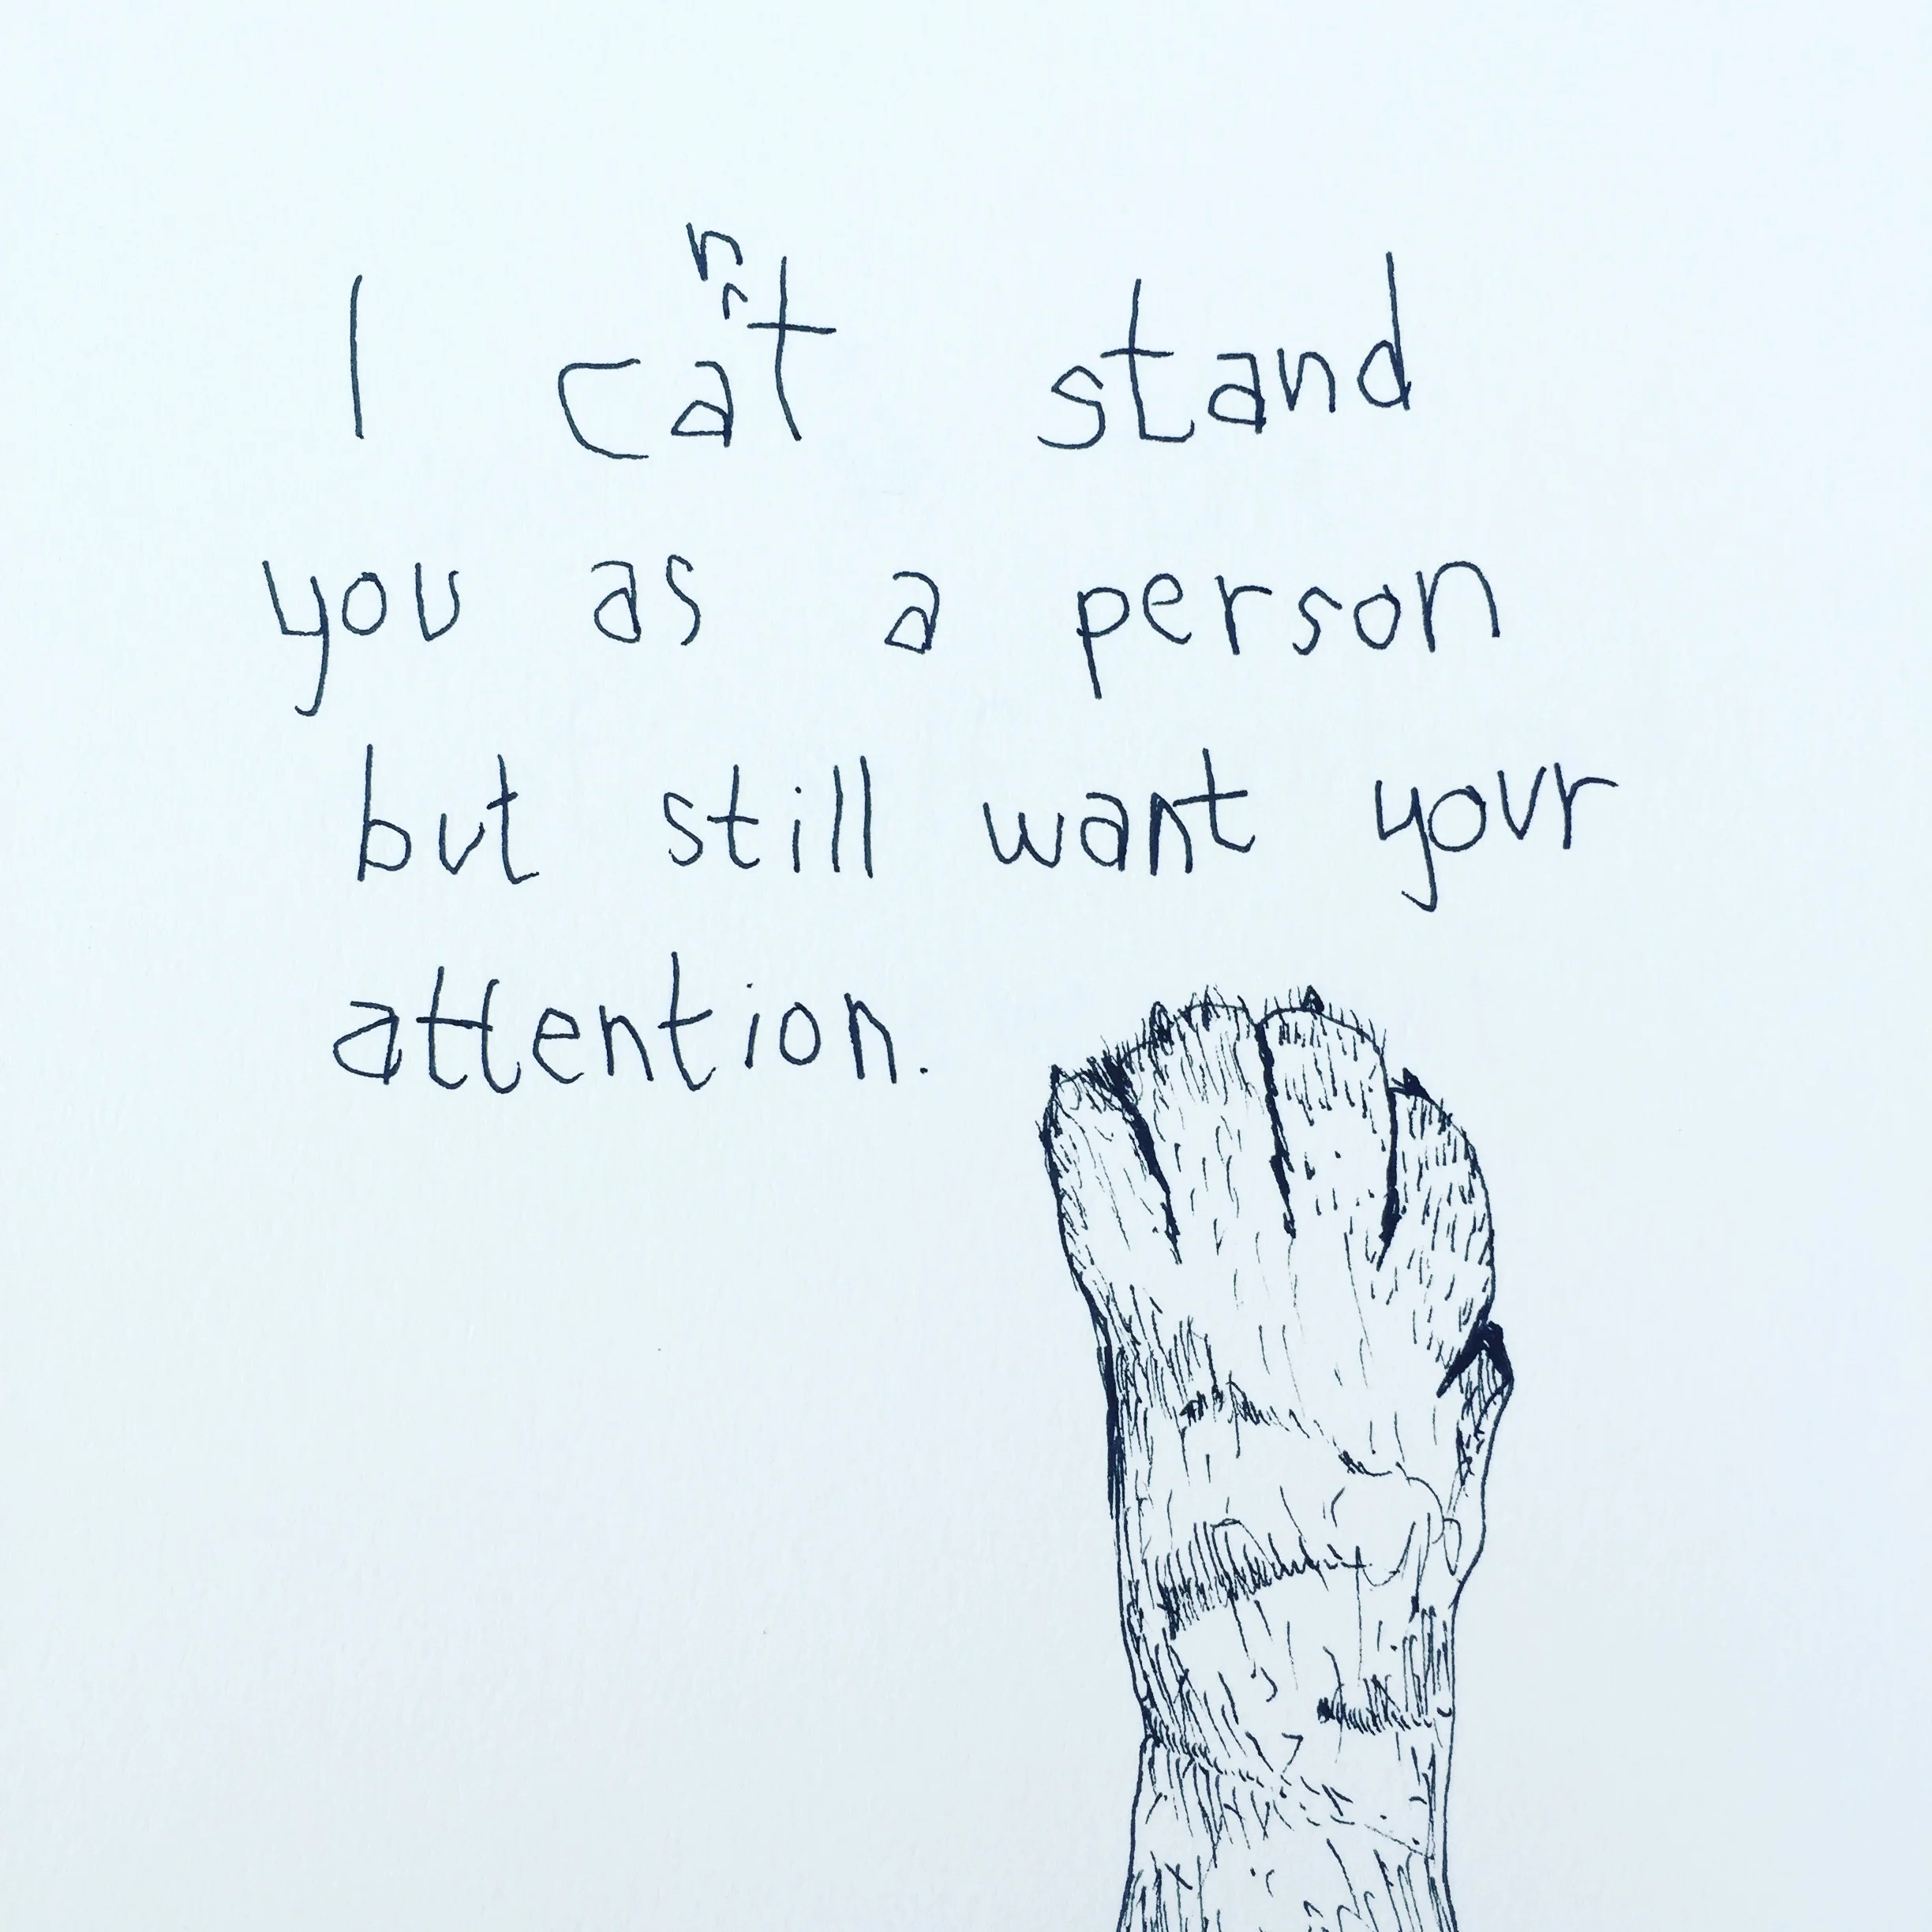 I cant stand
you as a person
but still want your
attention.